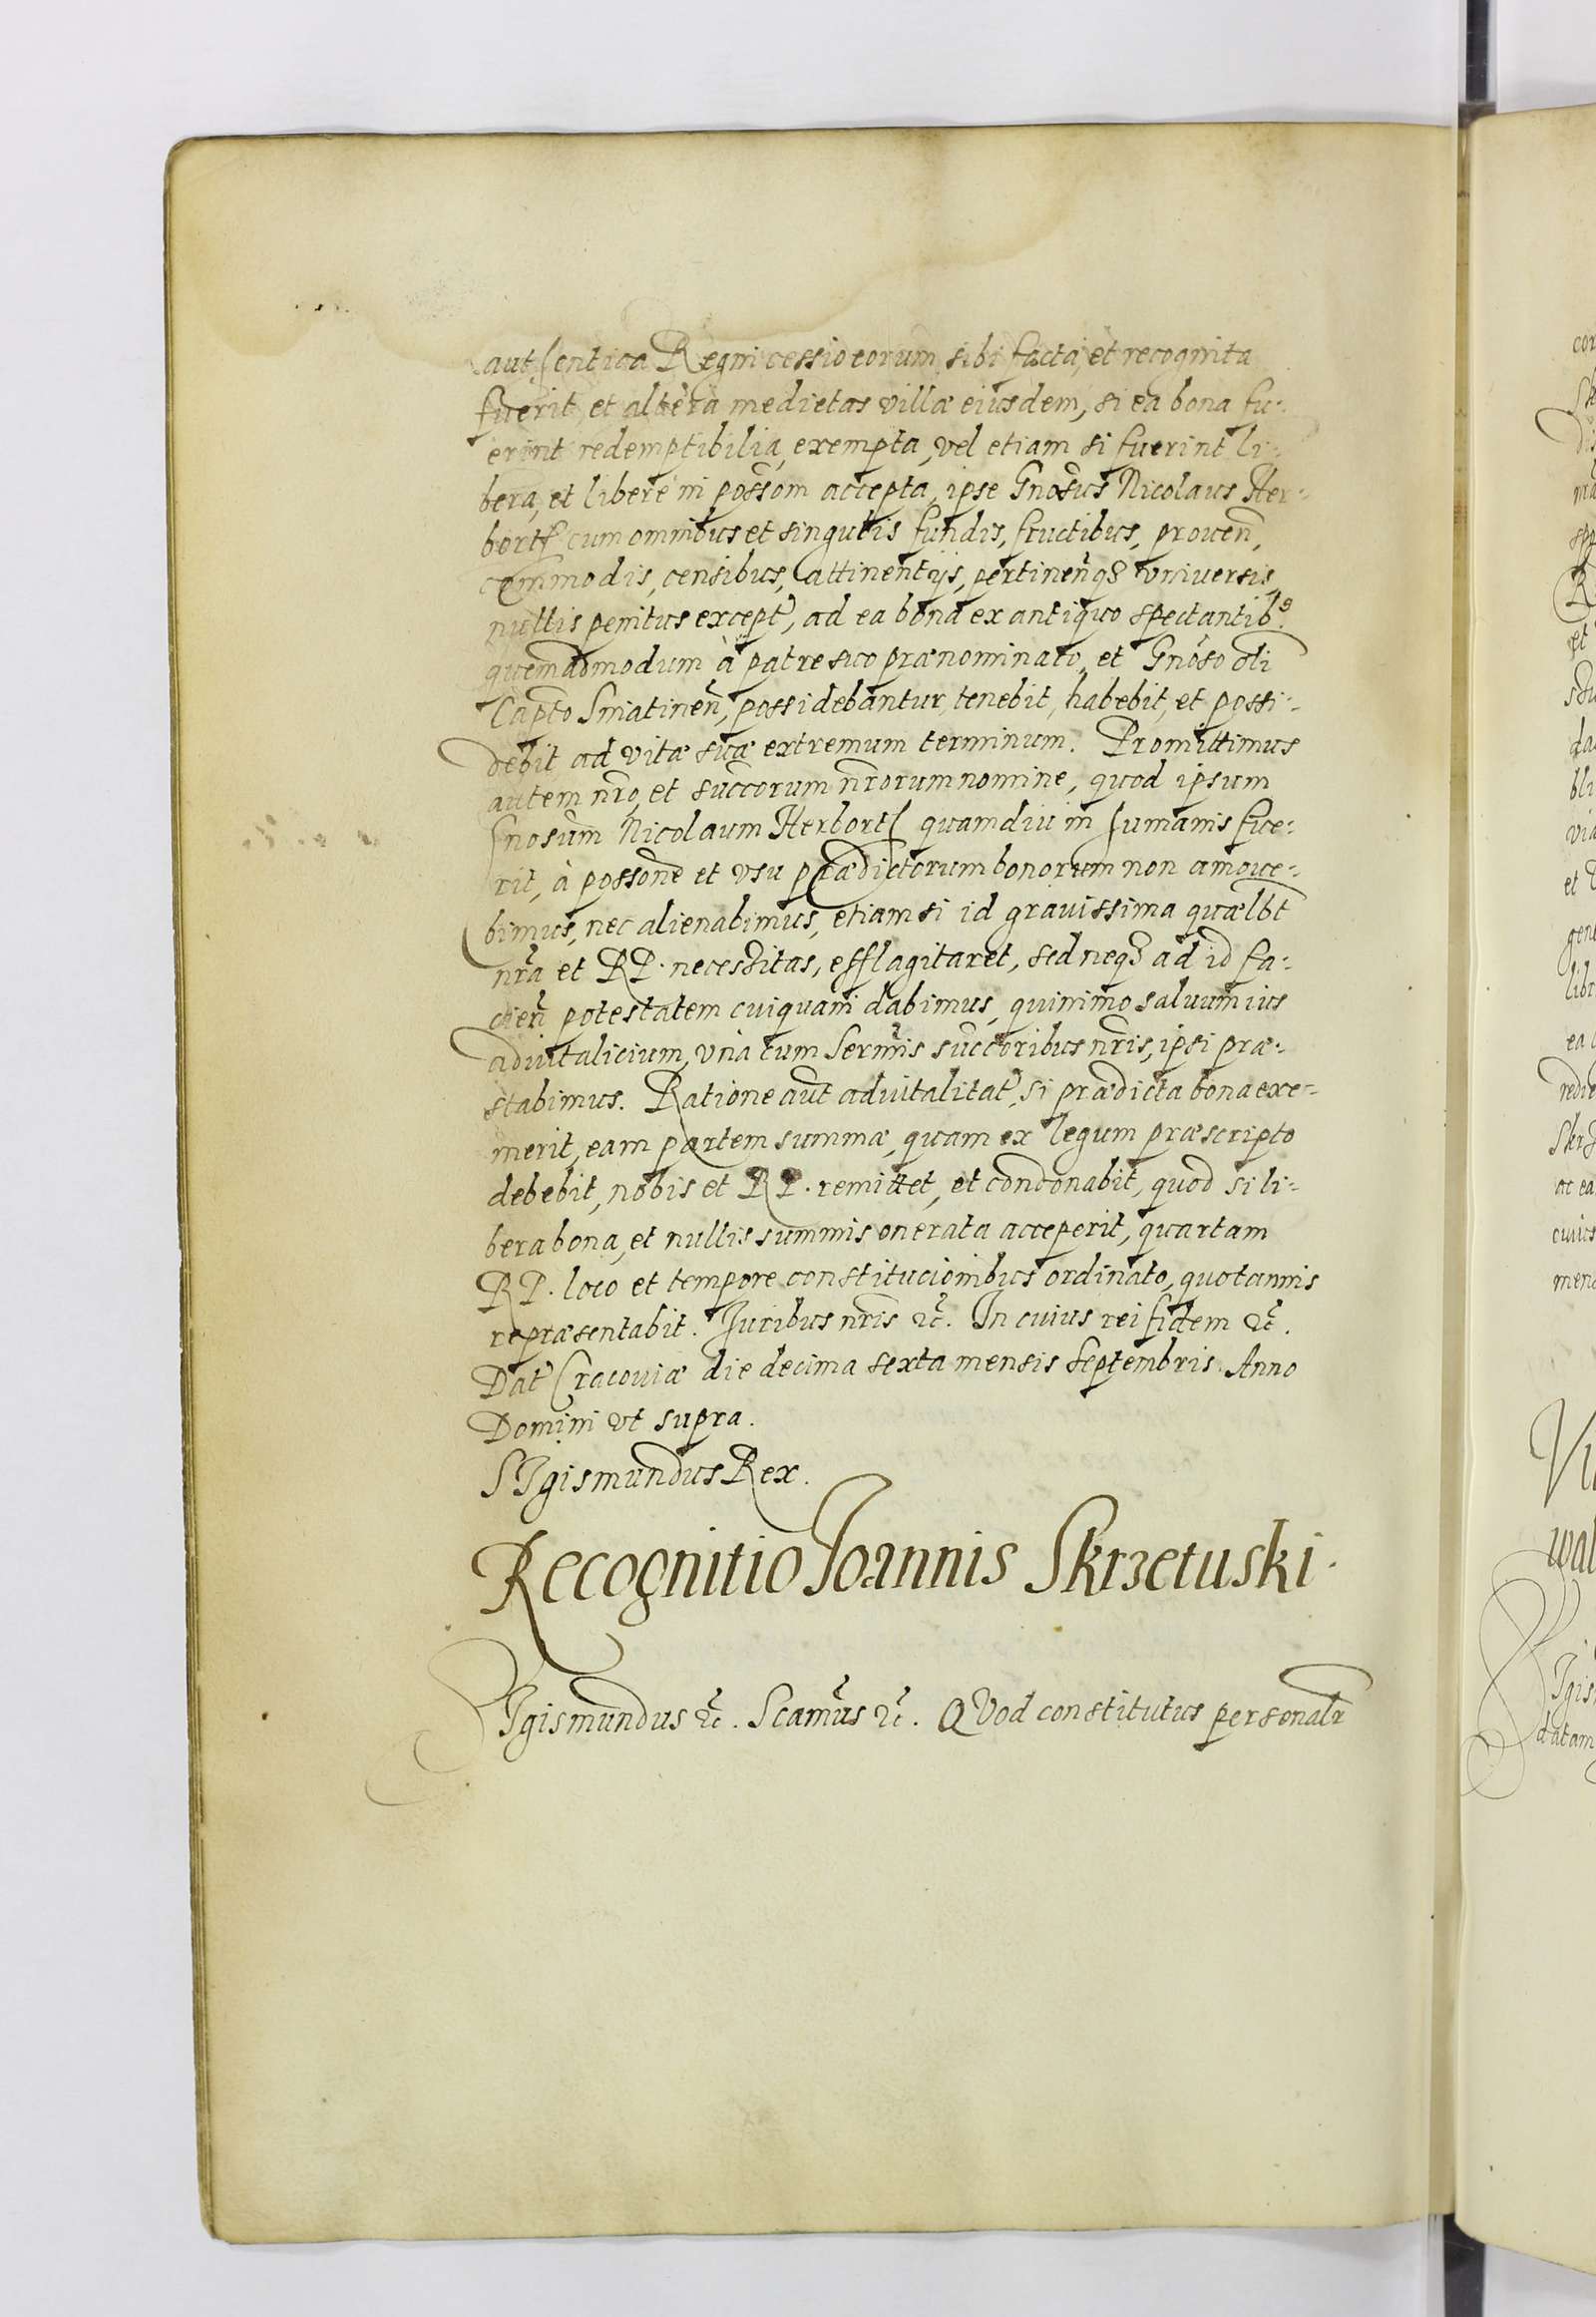 authentica Regni cessio eorum sibi facta, et recognita
fuerit, et altera medietas villæ eiusdem, si ea bona fu-
erint redemptibilia, exempta, vel etiam si fuerint li-
bera, et libere in possom accepta, ipse Gnosus Nicolaus Her-
borth cum omnibus et singulis fundis, fructibus, prouen,
commodis, censibus, attinentijs, pertinenq3 vniuersis,
nullis penitus except, ad ea bona ex antiquo spectantib9.
quemadmodum à patre suo prænominato, et Gnoso oli
Capto Sniatinen, possidebantur, tenebit, habebit, et possi-
debit ad vitæ suæ extremum terminum. Promittimus
autem nro, et succorum nrorum nomine, quod ipsum
Gnosum Nicolaum Herborth quamdiu in humanis fue-
rit, à possone et vsu prædictorum bonorum non amoue-
bimus, nec alienabimus, etiamsi id grauissima quælbt
nra et RP. necessitas, efflagitaret, sed neq3 ad id fa-
cien potestatem cuiquam dabimus, quinimo saluum ius
aduitalicium, vna cum Sermis succoribus nris, ipsi præ-
stabimus. Ratione aut aduitalitat, si prædicta bona exe-
merit, eam partem summæ, quam ex legum præscripto
debebit, nobis et RP. remittet, et condonabit, quod si li-
bera bona, et nullis summis onerata acceperit, quartam
RP. loco et tempore constitucionibus ordinato, quotannis
repræsentabit. Juribus nris &c. In cuius rei fidem &c.
Dat Cracouiæ die decima sexta mensis Septembris. Anno
Domini vt supra.
SIgismundus Rex.
Recognitio Joannis Skrzetuski.
SIgismundus &c. Scamus &c. QVod constitutus personalr